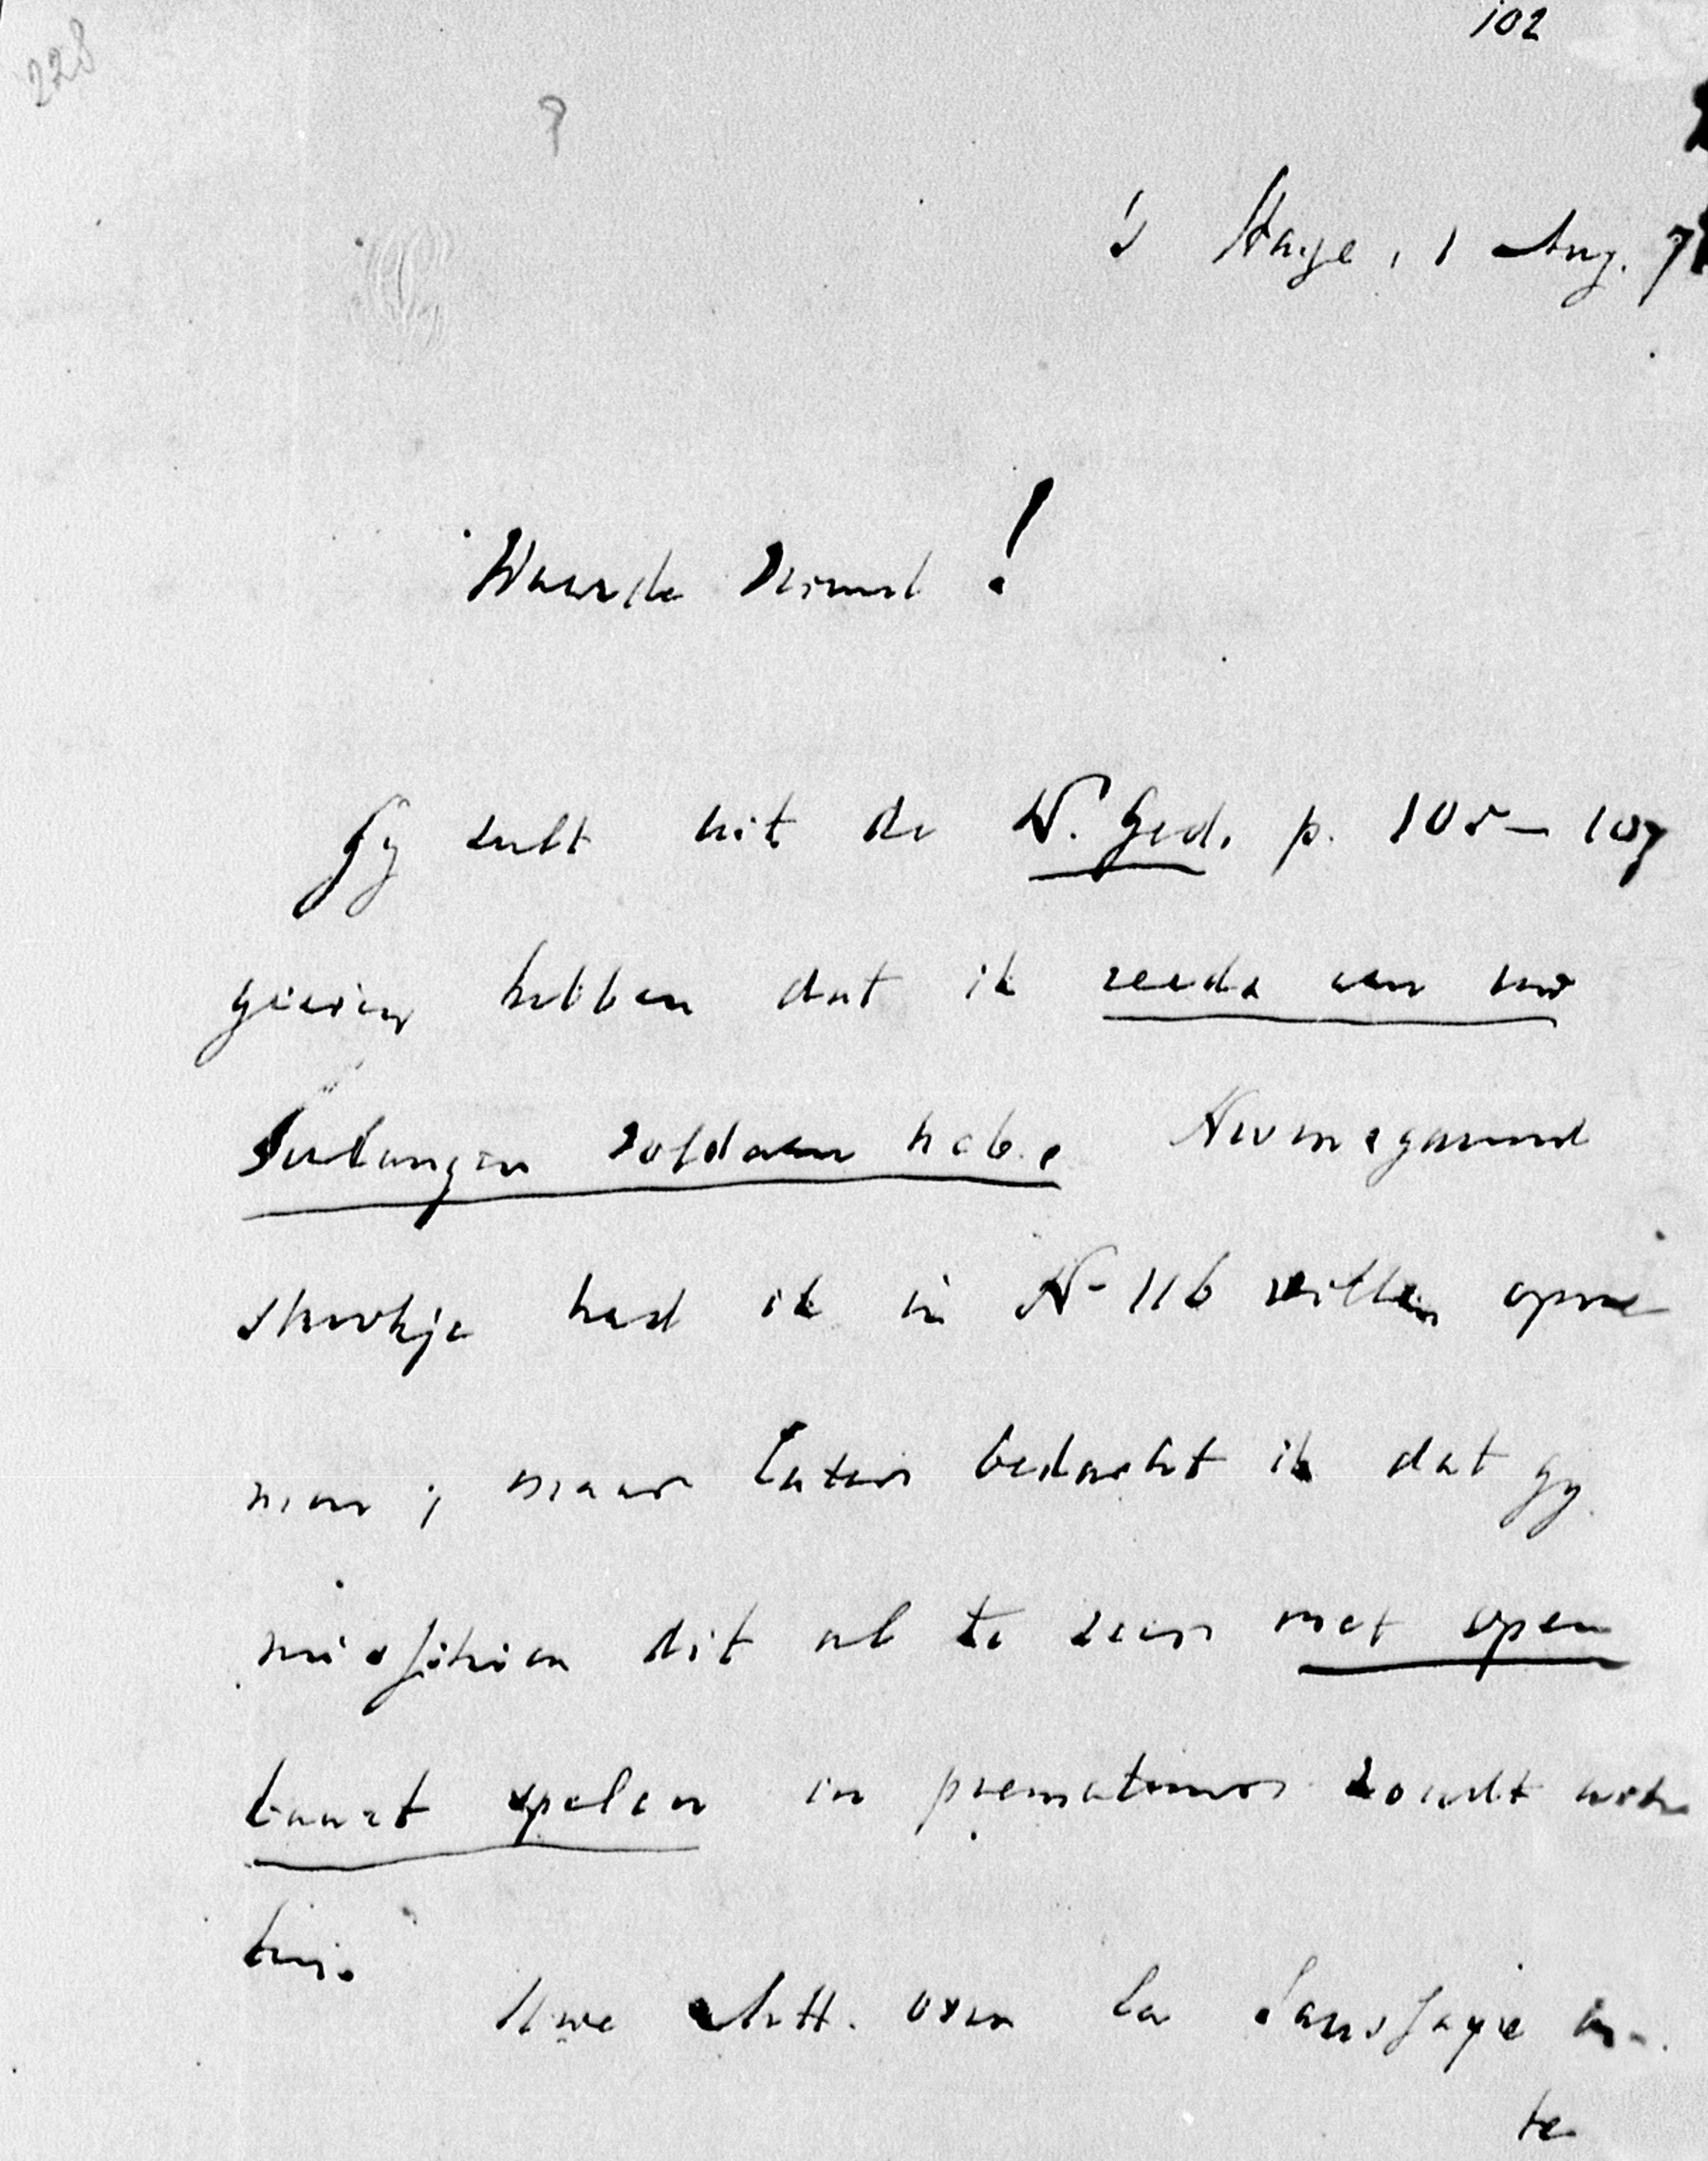 102
228
?
's Hage, 1 Aug. 7
Waarde Vriend!
Gy zult uit de N. Ged. p. 105-107
gezien hebben dat ik reeds aan uw
verlangen voldaan heb. Nevensgaand
stukje had ik in N- 116 willen opne
men; maar later bedacht ik dat gy
misschien dit al te zeer met open
kaart spelen en prematuur zoudt
Uwe Art. over La Saussaye
te